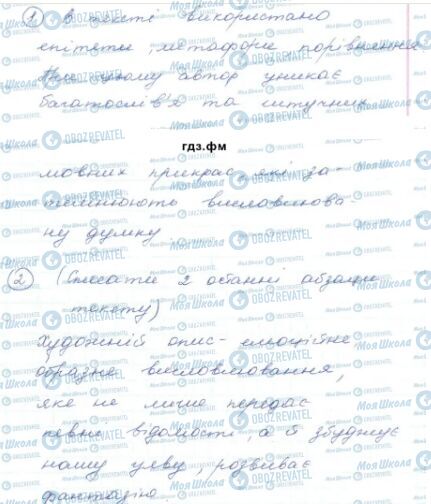 ① В тексті використано
епітети, метафори, порівняння.
При цьому автор уникає
багатослів'я та штучних
гдз.фм
мовних прикрас, які за-
темнюють висловлюва-
ну думку.
② (Списати 2 останні абзаци
тексту)
Художній опис - емоційне
образне висловлювання,
яке не лише передає
певні відомості, а й збуджує
нашу уяву, розвиває
фантазію.
Моя Школа
OBOZREVATEL